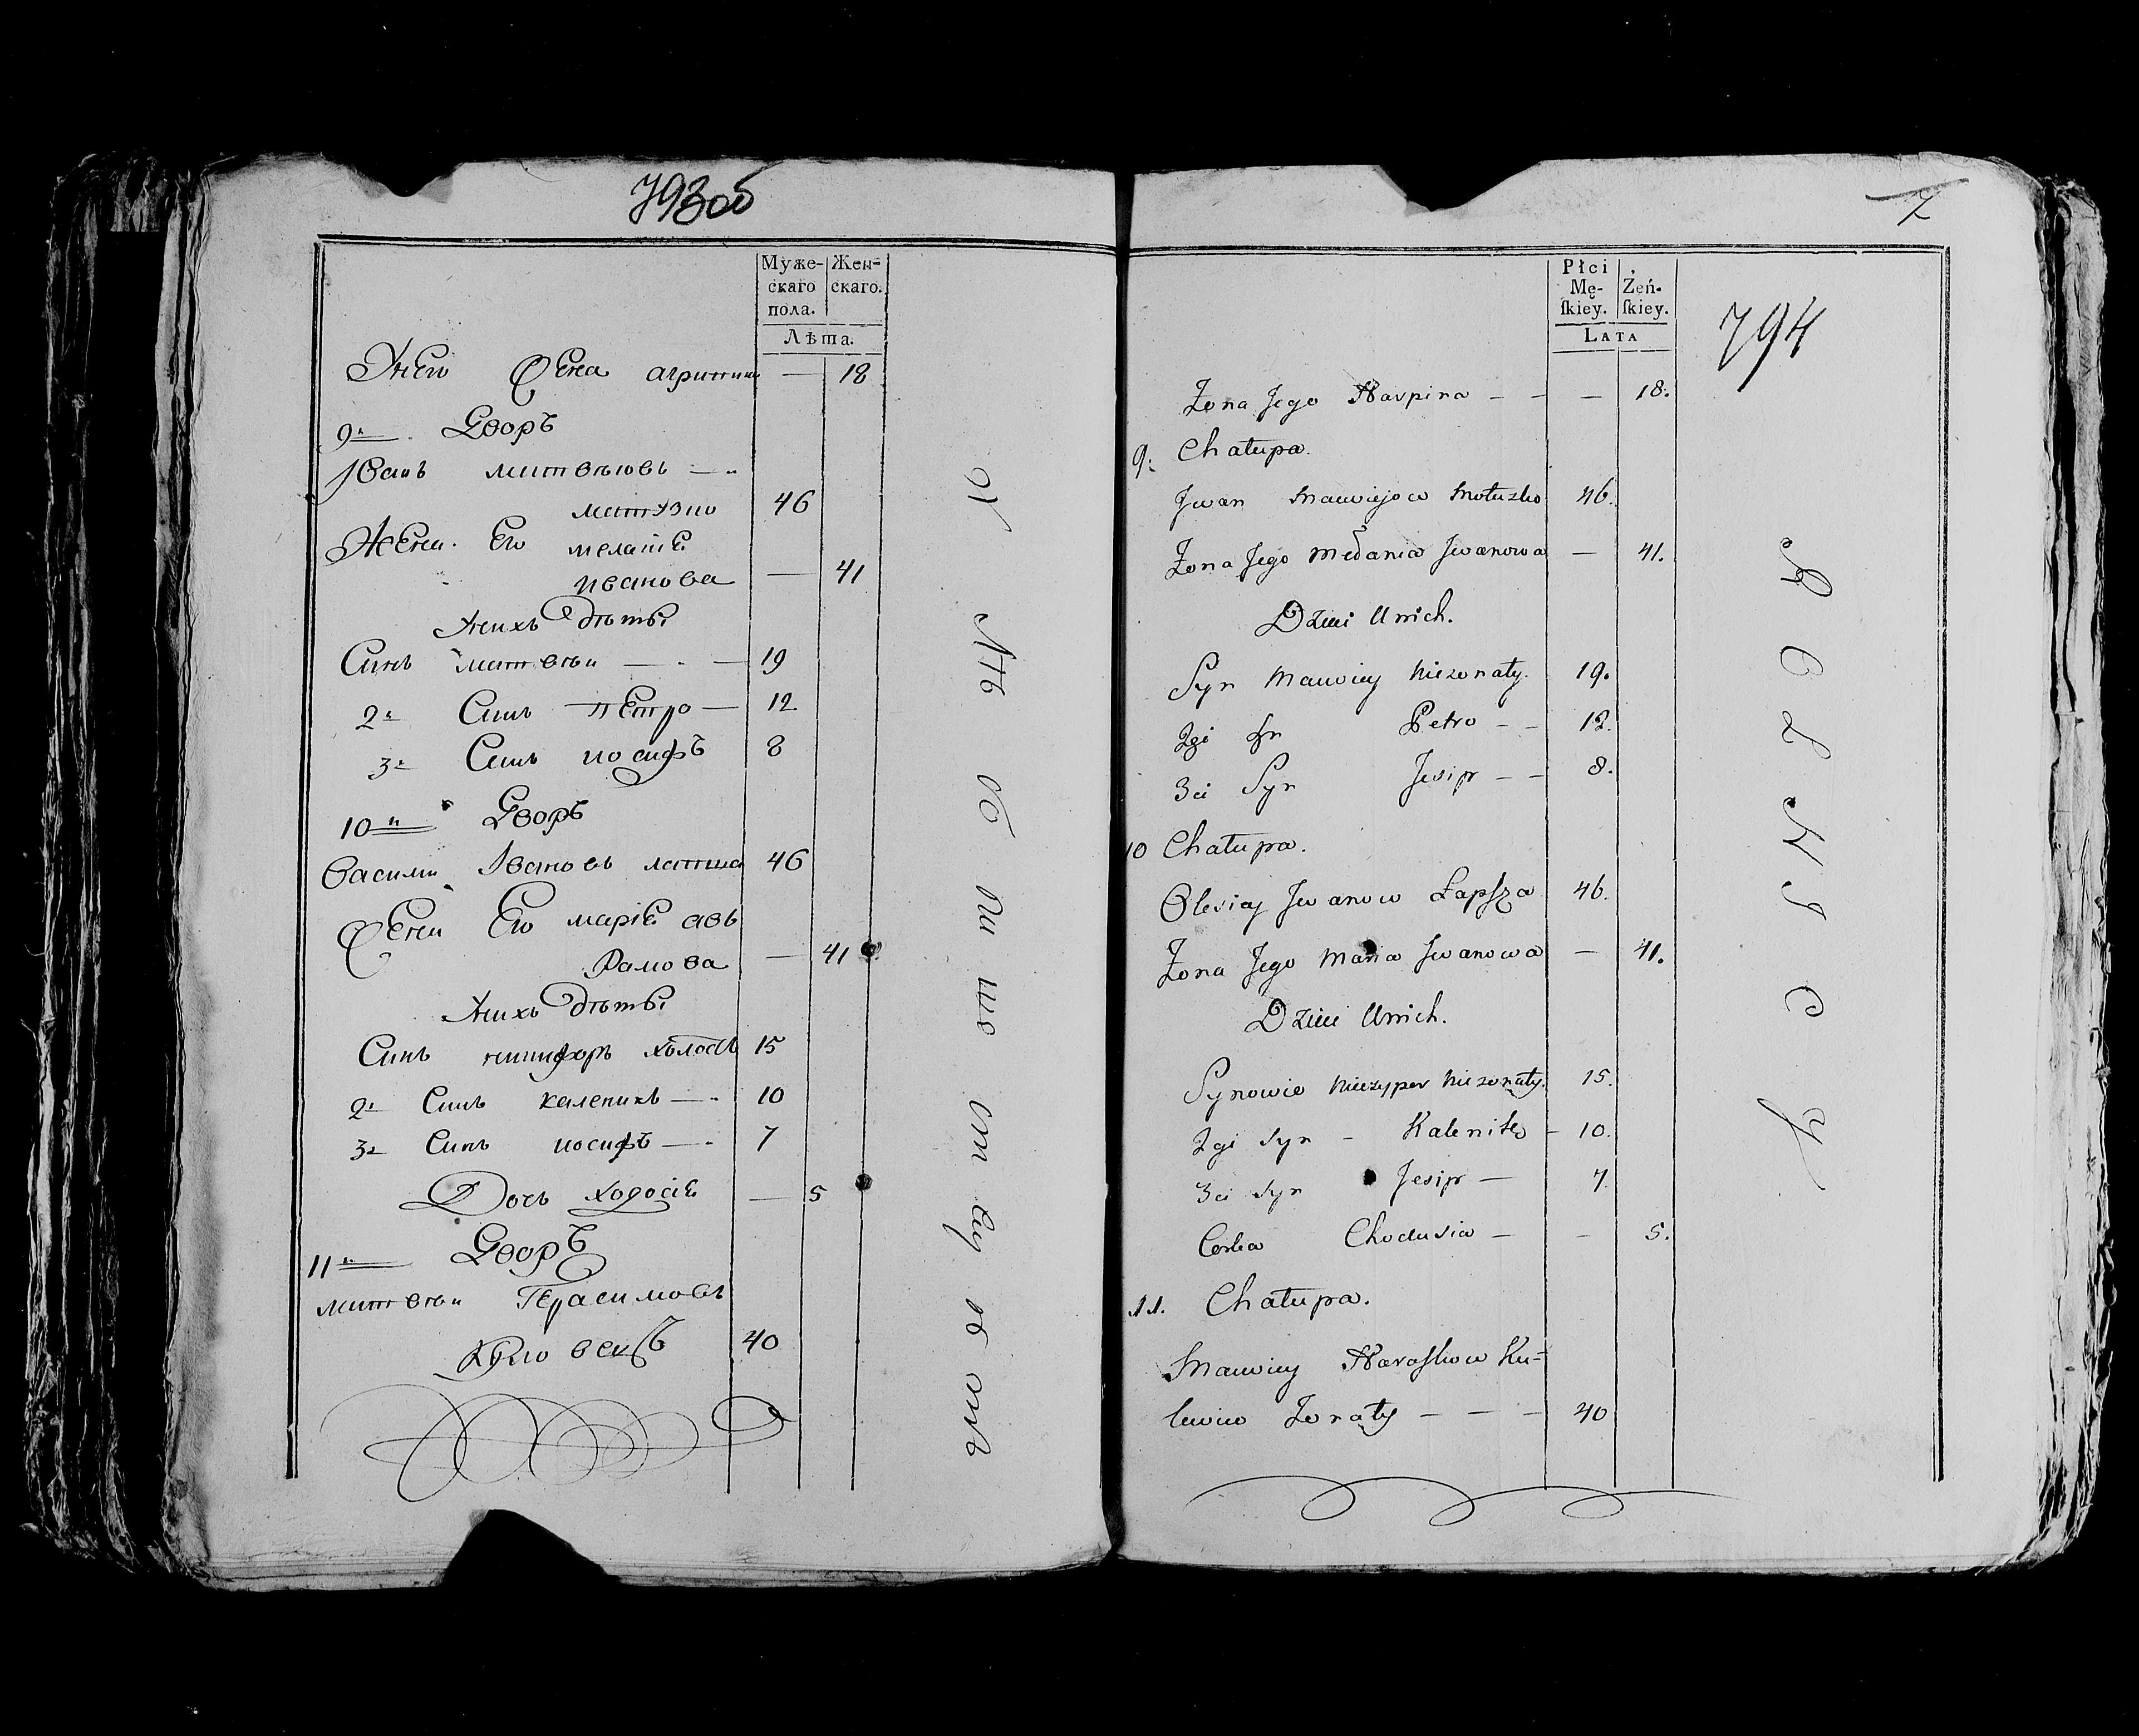 793об
Муже- Жен-
скаго скаго.
пола.
Лѣта.
Унего Жена агрипина — 18
9й Дворъ
Иванъ матвѣювъ —
матузко 46
Жена Его меланіѣ
иванова — 41
Унихъ дѣты
Синъ матвѣи — 19
2й Синъ пЕтро — 12
3й Синъ иосифъ 8
10й Дворъ
Василии Ивановъ лапша 46
Жена Его маріѣ авъ
рамова — 41
Унихъ дѣты
Синъ ничифоръ холостъ 15
2й Синъ каленикъ — 10
3й Синъ иосифъ — 7
Дочъ ходосіѣ — 5
11й Дворъ
матвѣи Герасимовъ
40
7
794
Płci Żeń-
Mę- skiey.
skiey.
LATA
Żona Jego Harpina — — 18.
9. Chałupa.
Jwan Mawiejow Motuzko 46.
Żona Jego Melania Jwanowa — 41.
Dzieci Unich.
Syn Mawiey Nieżonaty. 19.
2gi Syn Petro — 12.
3ci Syn Jesip — 8.
10 Chałupa.
Olexiey Jwanow Łapsza 46.
Żona Jego Maria Jwanowa — 41.
Dzieci Unich.
Synowie Nieczyper Nieżonaty. 15.
2gi Syn — Kalenik — 10.
3ci Syn Jesip — 7.
Corka Chodusia — — 5.
11. Chałupa.
Mawiey Haraskow Ku=
lewicz Żonaty — — — 40